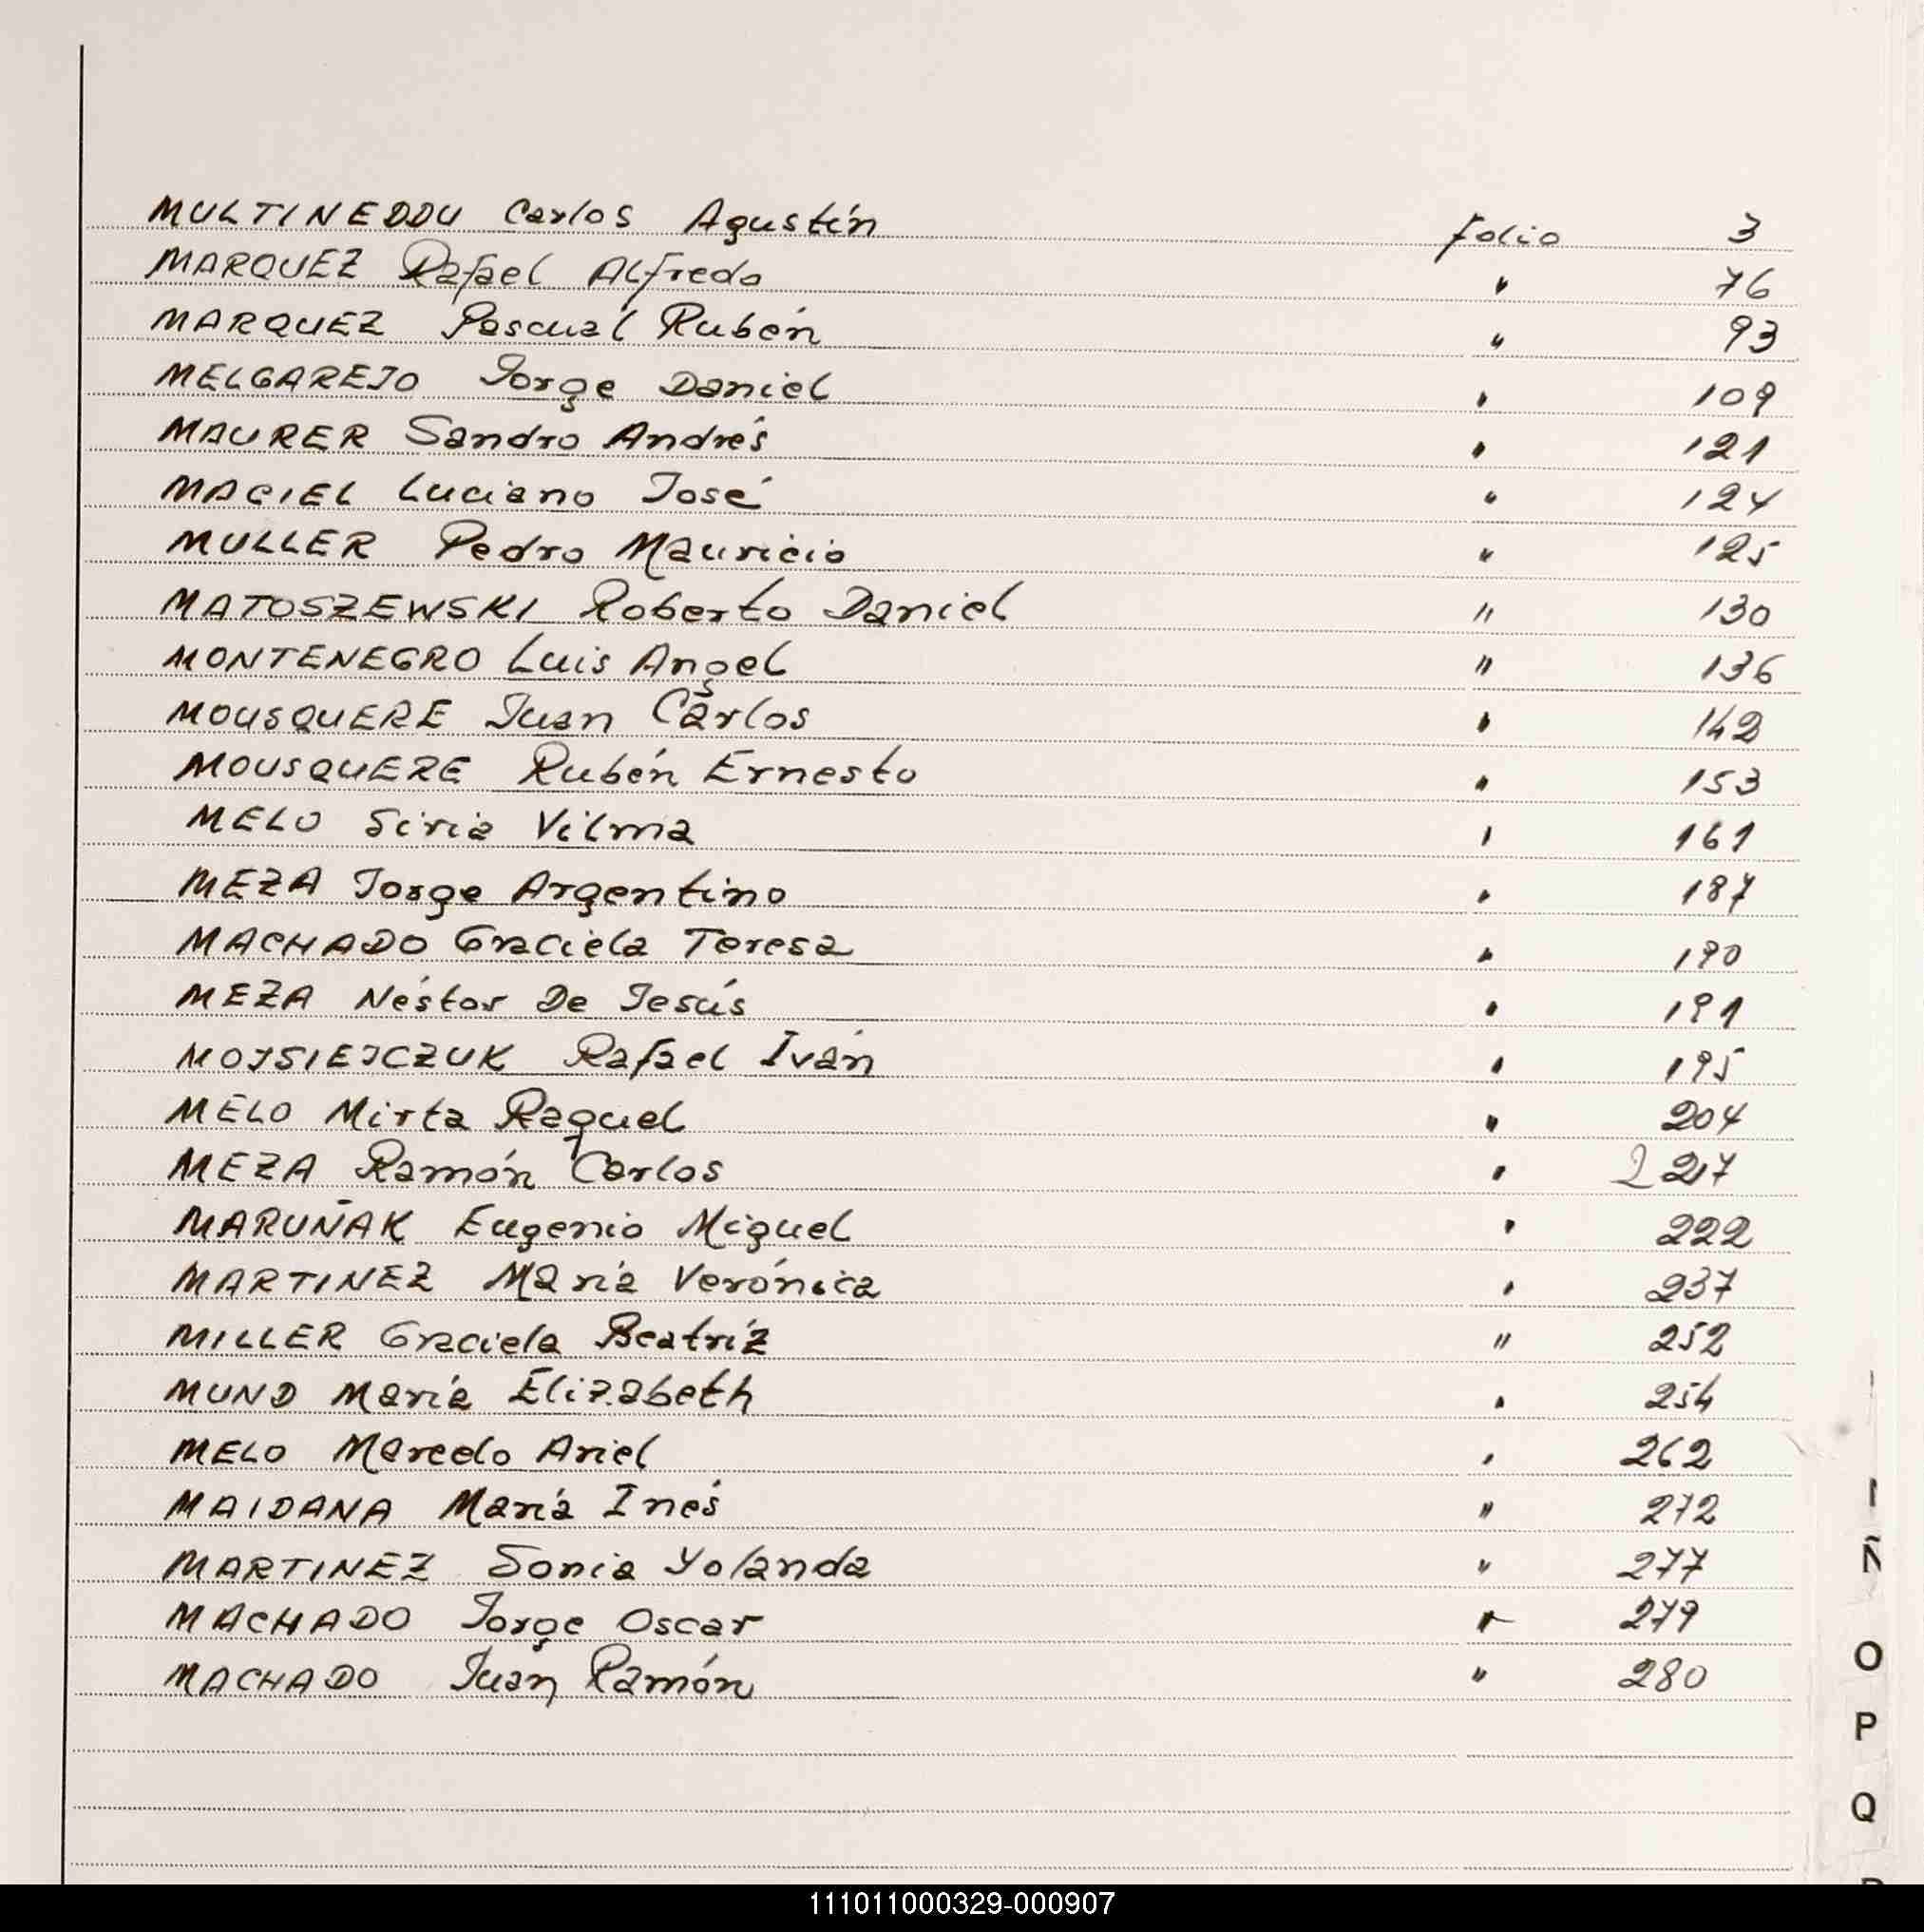 MULTINEDDU Carlos Agustín folio 3
MARQUEZ Rafael Alfredo " 76
MARQUEZ Pascual Rubén " 93
MELGAREJO Jorge Daniel " 109
MAURER Sandro Andrés " 121
MACIEL Luciano José " 124
MULLER Pedro Mauricio " 125
MATOSZEWSKI Roberto Daniel " 130
MONTENEGRO Luis Angel " 136
MOUSQUERE Juan Carlos " 142
MOUSQUERE Rubén Ernesto " 153
MELO Siria Vilma " 161
MEZA Jorge Argentino " 187
MACHADO Graciela Teresa " 190
MEZA Néstor De Jesús " 191
MOJSIEJCZUK Rafael Iván " 195
MELO Mirta Raquel " 204
MEZA Ramón Carlos " 217
MARUÑAK Eugenio Miguel " 222
MARTINEZ María Verónica " 237
MILLER Graciela Beatríz " 252
MUND María Elizabeth " 254
MELO Marcelo Ariel " 262
MAIDANA María Inés " 272
MARTINEZ Sonia Yolanda " 277
MACHADO Jorge Oscar " 279
MACHADO Juan Ramón " 280
Ñ
O
P
Q
111011000329-000907